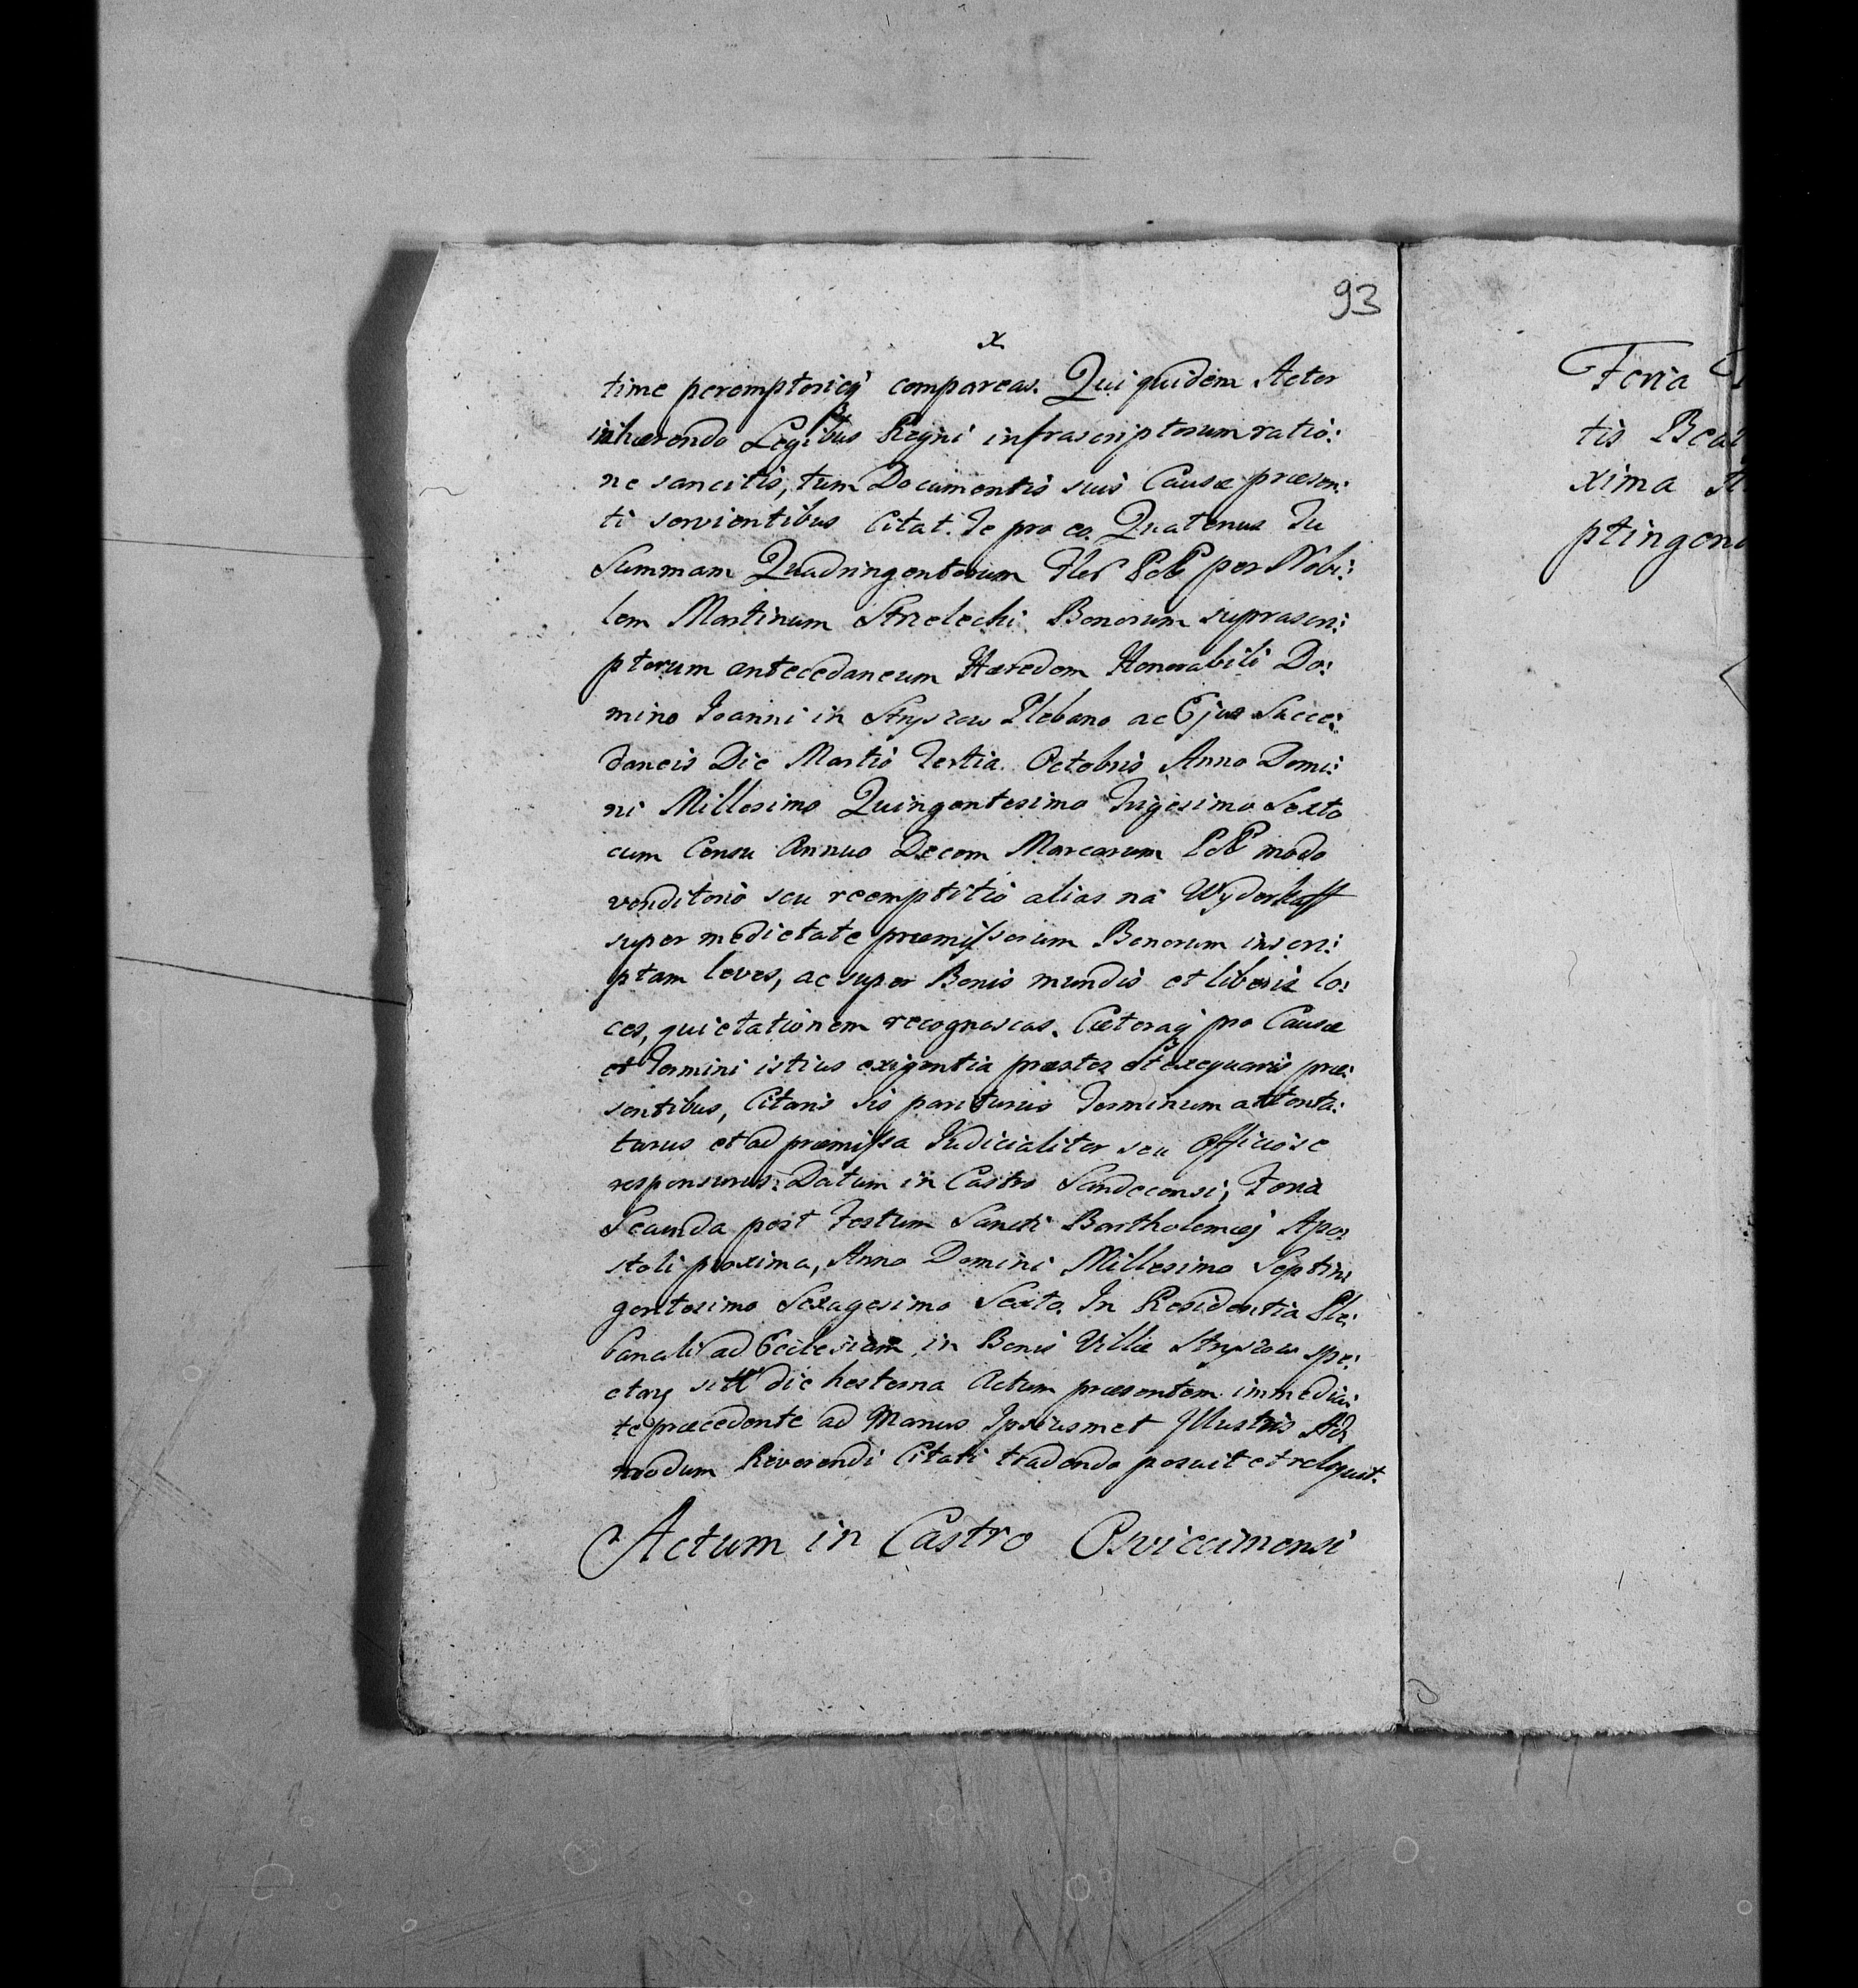 93
x
time peremptorieq compareas. Qui quidem Actor
inhærendo Legibus Regni infrascriptorum ratio:
ne sancitis, tum Documentis suis Causæ præsen:
ti servientibus Citat. Te pro eo. Quatenus Tu
Summam Quadringentorum per Nobi:
lem Martinum Strzelecki Bonorum suprascri:
ptorum antecedaneum Hæredem Honorabili Do:
mino Joanni in Stryszow Plebano ac Ejus Succe:
daneis Die Martis Tertia Octobris Anno Domi:
ni Millesimo Quingentesimo Trigesimo Sexto
cum Censu Annuo Decem Marcarum modo
venditorio seu reemptitio alias na Wyderkaff
super medietate præmissorum Bonorum inscri:
ptam leves, ac super Bonis mundis et liberis lo:
ces, quietationem recognoscas. Cæteraq pro Causæ
et Termini istius exigentia præstes et exequaris præ:
sentibus, Citaris sis pariturus Terminum attenta:
turus et ad præmissa Judicialiter seu Officiose
responsurus. Datum in Castro Sandecensi, Feria
Secunda post Festum Sancti Bartholomæj Apo:
stoli proxima, Anno Domini Millesimo Septin:
gentesimo Sexagesimo Sexto. In Residentia Ple:
banali ad Ecclesiam in Bonis Villæ Stryszow spe:
ctan die hesterna Actum præsentem immedia:
te præcedente ad Manus Ipsiusmet Illustris Ad:
modum Reverendi Citati tradendo posuit et reliquit.
Actum in Castro Osviecimensi
Feria
tis Bea
xima
ptingen